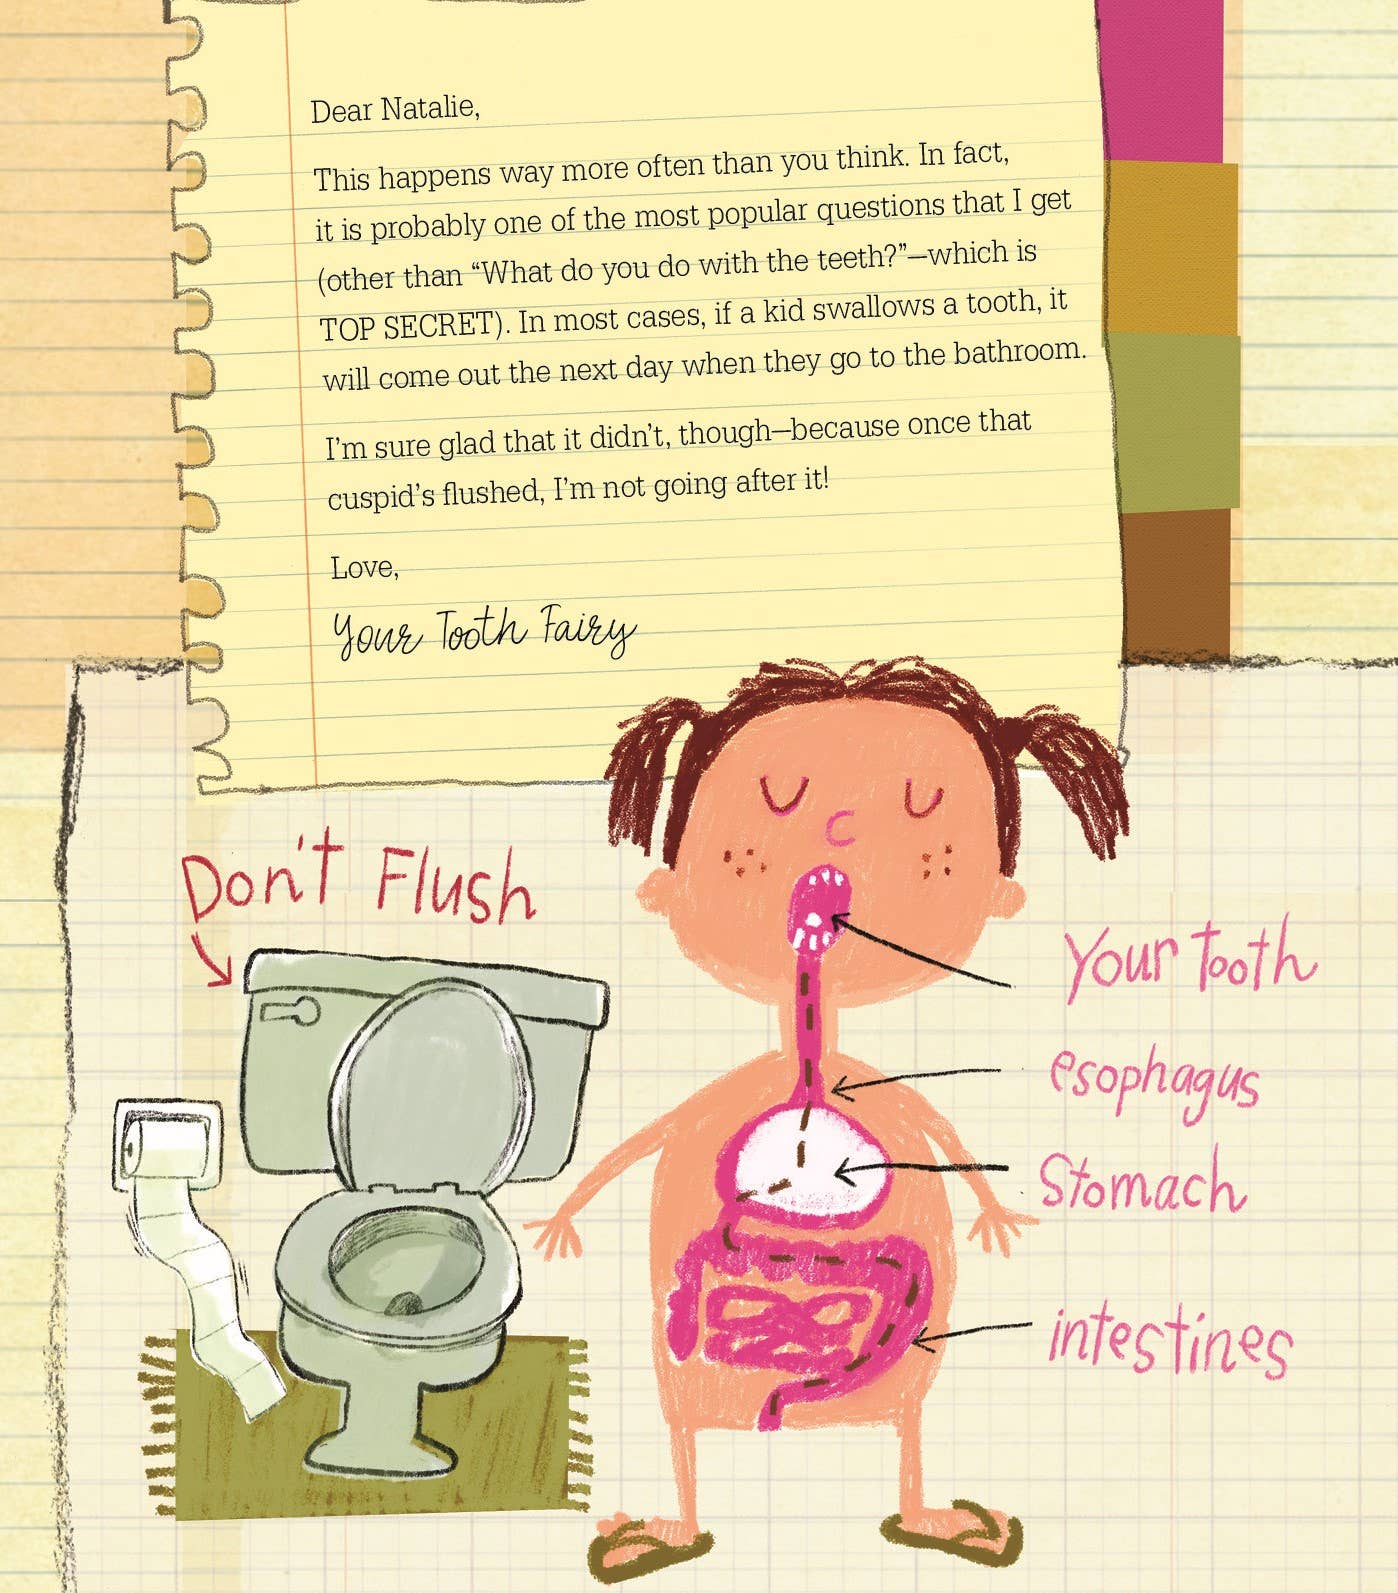 Dear Natalie,
This happens way more often than you think. In fact,
it is probably one of the most popular questions that I get
(other than “What do you do with the teeth?”—which is
TOP SECRET). In most cases, if a kid swallows a tooth, it
will come out the next day when they go to the bathroom.
I’m sure glad that it didn’t, though—because once that
cuspid’s flushed, I’m not going after it!
Love,
Your Tooth Fairy
Don't Flush
Your Tooth
esophagus
Stomach
intestines